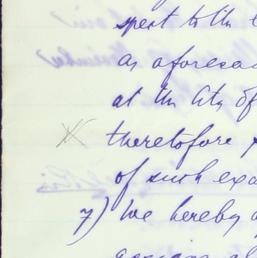 spect to the
as aforesa
at the City of
theretofore
of such exa
7) We hereby